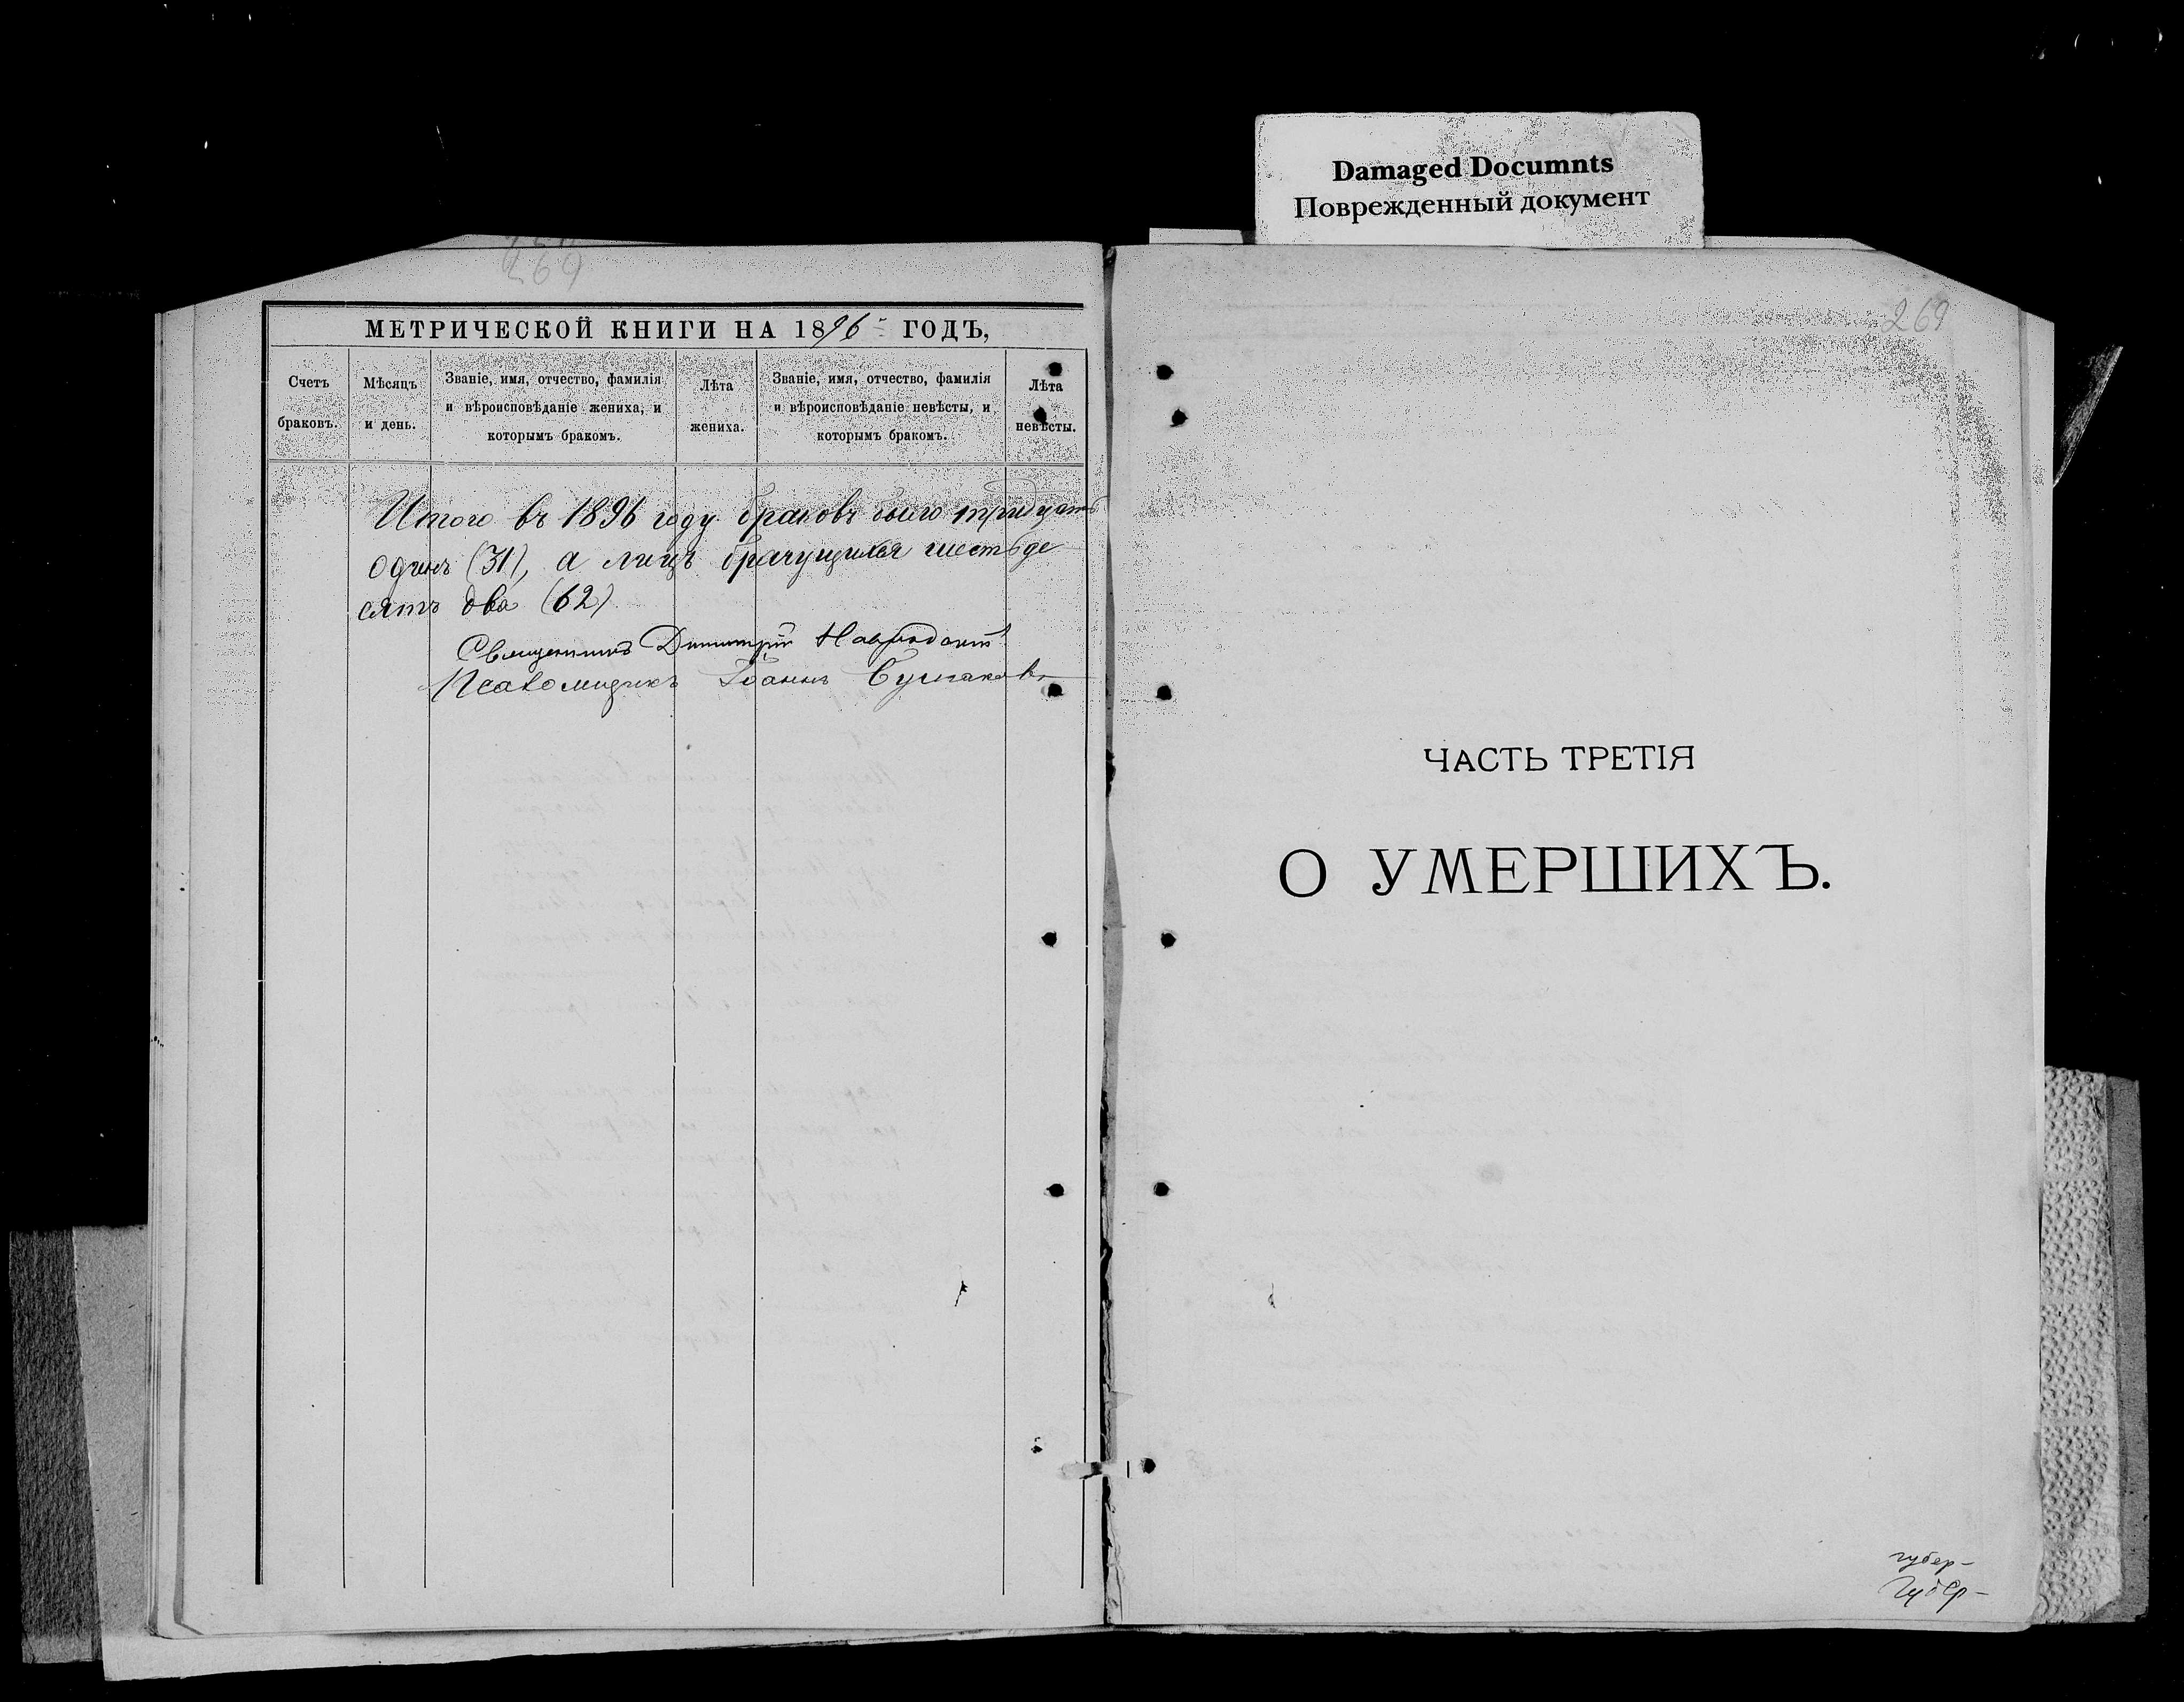 Damaged Documnts
Поврежденный документ
269
МЕТРИЧЕСКОЙ КНИГИ НА 1896 ГОДЪ,
Счетъ браковъ.
Мѣсяцъ и день.
Званіе, имя, отчество, фамилія и вѣроисповѣданіе жениха, и которымъ бракомъ.
Лѣта жениха.
Званіе, имя, отчество, фамилія и вѣроисповѣданіе невѣсты, и которымъ бракомъ.
Лѣта невѣсты.
Итого въ 1896 году браковъ было тридцать
одинъ (31), а лицъ брачущихся шестьде
сятъ два (62)
Священникъ Димитрій
Псаломщикъ Іоаннъ Булгаковъ
269
ЧАСТЬ ТРЕТІЯ
О УМЕРШИХЪ.
губер-
Губер-